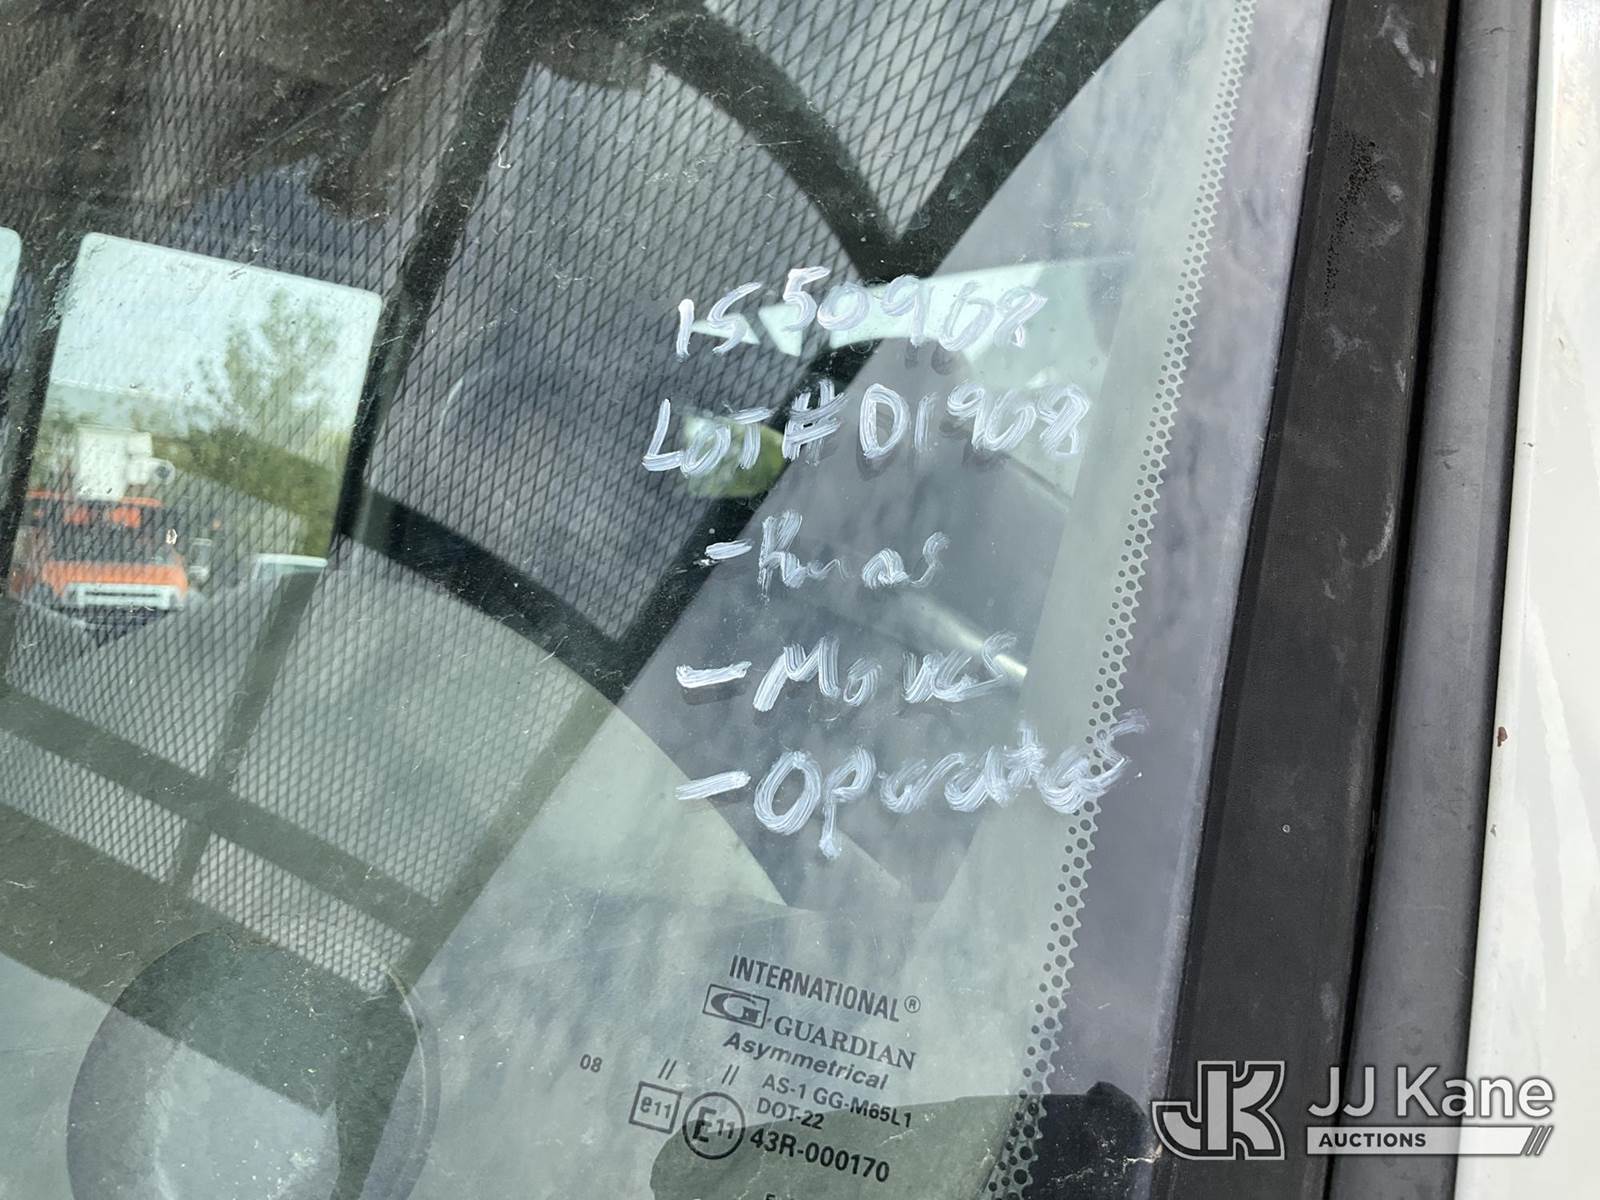 1550968
LOT# D1968
- Runs
- Moves
- Operates
INTERNATIONAL®
G GUARDIAN
Asymmetrical
08 // // AS-1 GG-M65L1
DOT-22
e11 E11 43R-000170
JK JJ Kane
AUCTIONS